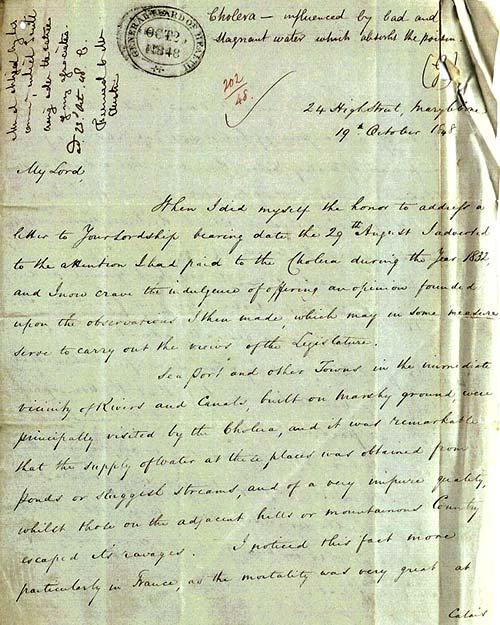 Cholera — influenced by bad and
Stagnant water which absorbs the poison
GENERAL BOARD OF HEALTH
OCT 2
1848
202
48.
24 High Street, Marylebone
19th October 1848
My Lord,
When I did myself the honor to address a
letter to Your Lordship bearing date the 29th August I adverted
to the attention I had paid to the Cholera during the Year 1832,
and I now crave the indulgence of offering an opinion founded
upon the observations I then made, which may in some measure
serve to carry out the views of the Legislature.
Sea Port and other Towns in the immediate
vicinity of Rivers and Canals, built on Marshy ground, were
principally visited by the Cholera, and it was remarkable
that the supply of water at these places was obtained from
ponds or sluggish streams, and of a very impure quality,
whilst those on the adjacent hills or mountainous Country
escaped its ravages. I noticed this fact more
particularly in France, as the mortality was very great at
Calais